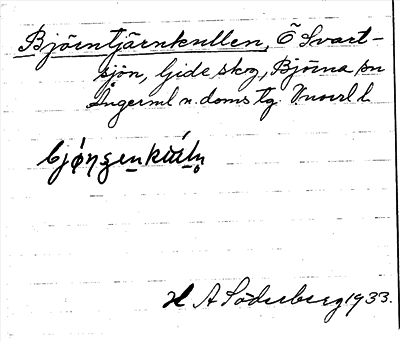 Björntjärnkullen, Ö Svart-
sjön, Gide skog, Björna sn
Ångerml n. doms tg. V.norrl l.
H A Söderberg 1933.